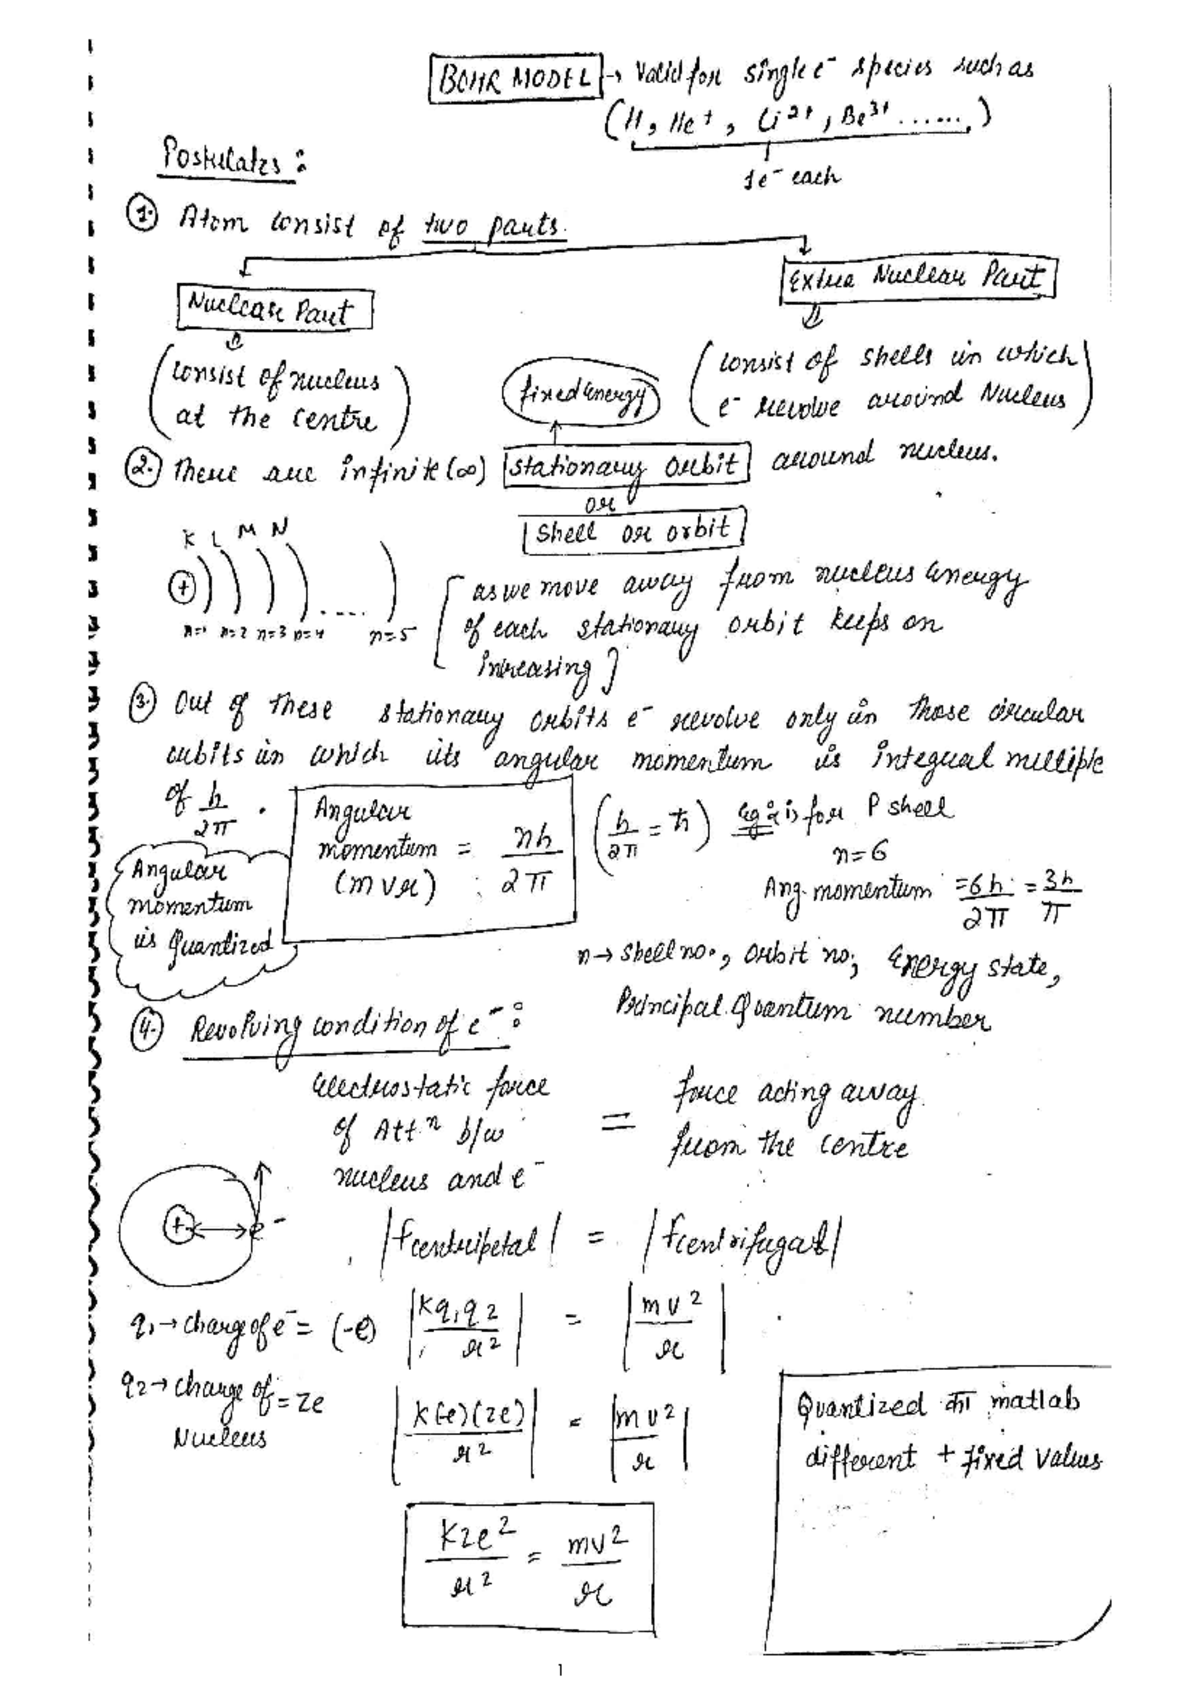 BOHR MODEL → Valid for single e⁻ species such as
(H, He⁺, Li²⁺, Be³⁺ ......)
1e⁻ each
Postulates:
1. Atom consist of two parts.
Nuclear Part
Extra Nuclear Part
(consist of nucleus at the centre)
(consist of shells in which e⁻ revolve around Nucleus)
fixed energy
2. There are infinite (∞) stationary orbit around nucleus.
or
shell or orbit
K L M N
+ ) ) ) ) .... )
n=1 n=2 n=3 n=4 n=5
[as we move away from nucleus energy
of each stationary orbit keeps on
increasing]
3. Out of these stationary orbits e⁻ revolve only in those circular
orbits in which its angular momentum is integral multiple
of h/2π.
Angular momentum (mvr) = nh/2π
(h/2π = ħ)
eg: is for P shell
n=6
Ang. momentum = 6h/2π = 3h/π
Angular
momentum
is Quantized
n → shell no., orbit no., Energy state,
Principal Quantum number
4. Revolving condition of e⁻:
electrostatic force
of Attⁿ b/w
nucleus and e⁻
=
force acting away
from the centre
+ e⁻
|fcentripetal| = |fcentrifugal|
q₁ → charge of e⁻ = (-e)
|Kq₁q₂/r²| = |mv²/r|
q₂ → charge of = Ze
Nucleus
|K(-e)(ze)/r²| = |mv²/r|
Kze²/r² = mv²/r
Quantized का matlab
different + fixed values
1